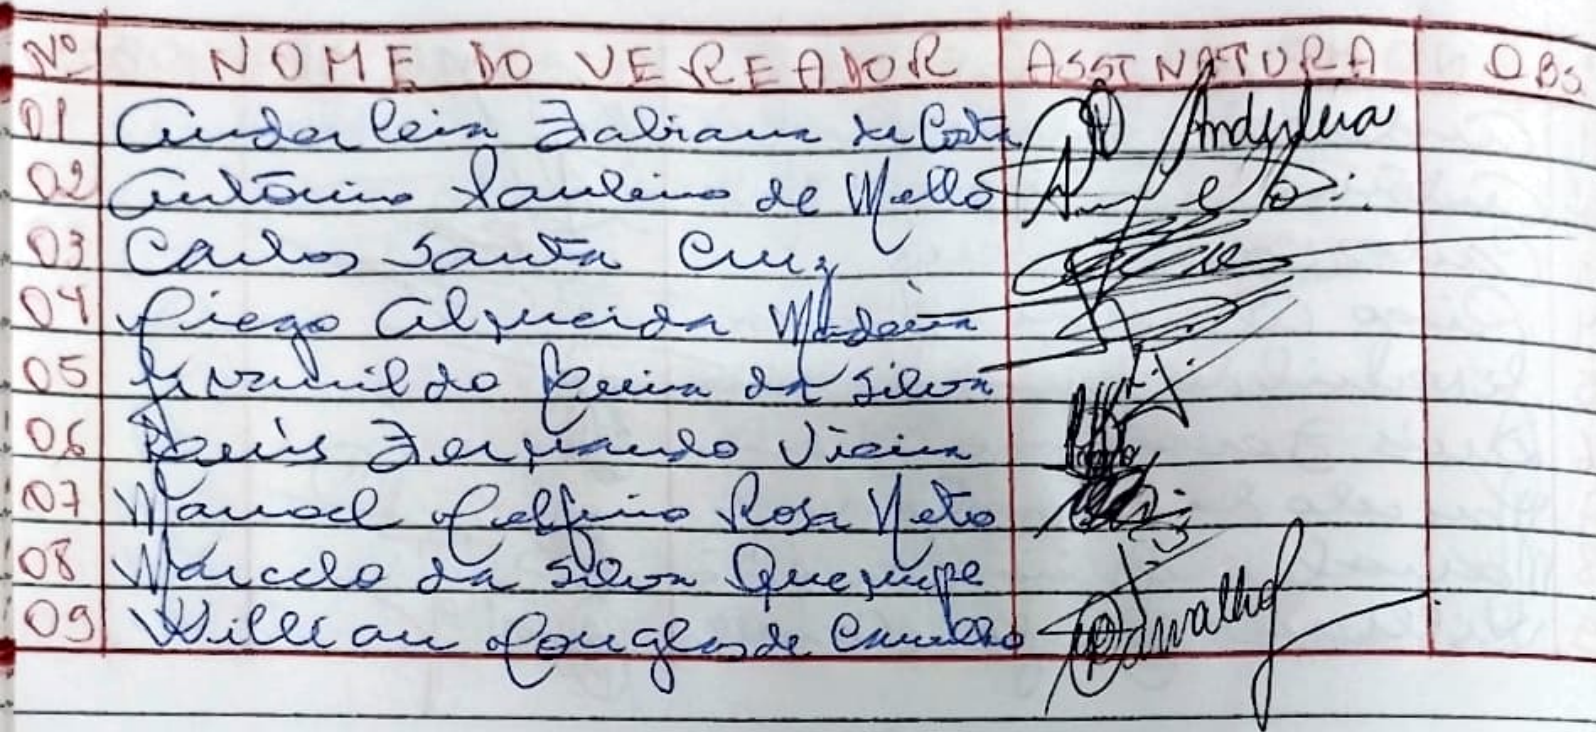 Nº NOME DO VEREADOR ASSINATURA OBS
01 Anderleia Fabiana da Costa Anderleia
02 Antônio Paulino de Mello
03 Carlos Santa Cruz
04 Diego Almeida
05 da Silva
06 Luis Fernando Vieira
07 Manoel Delfino Rosa Neto
08 Marcelo da Silva
09 Willian Douglas de Carvalho Carvalho